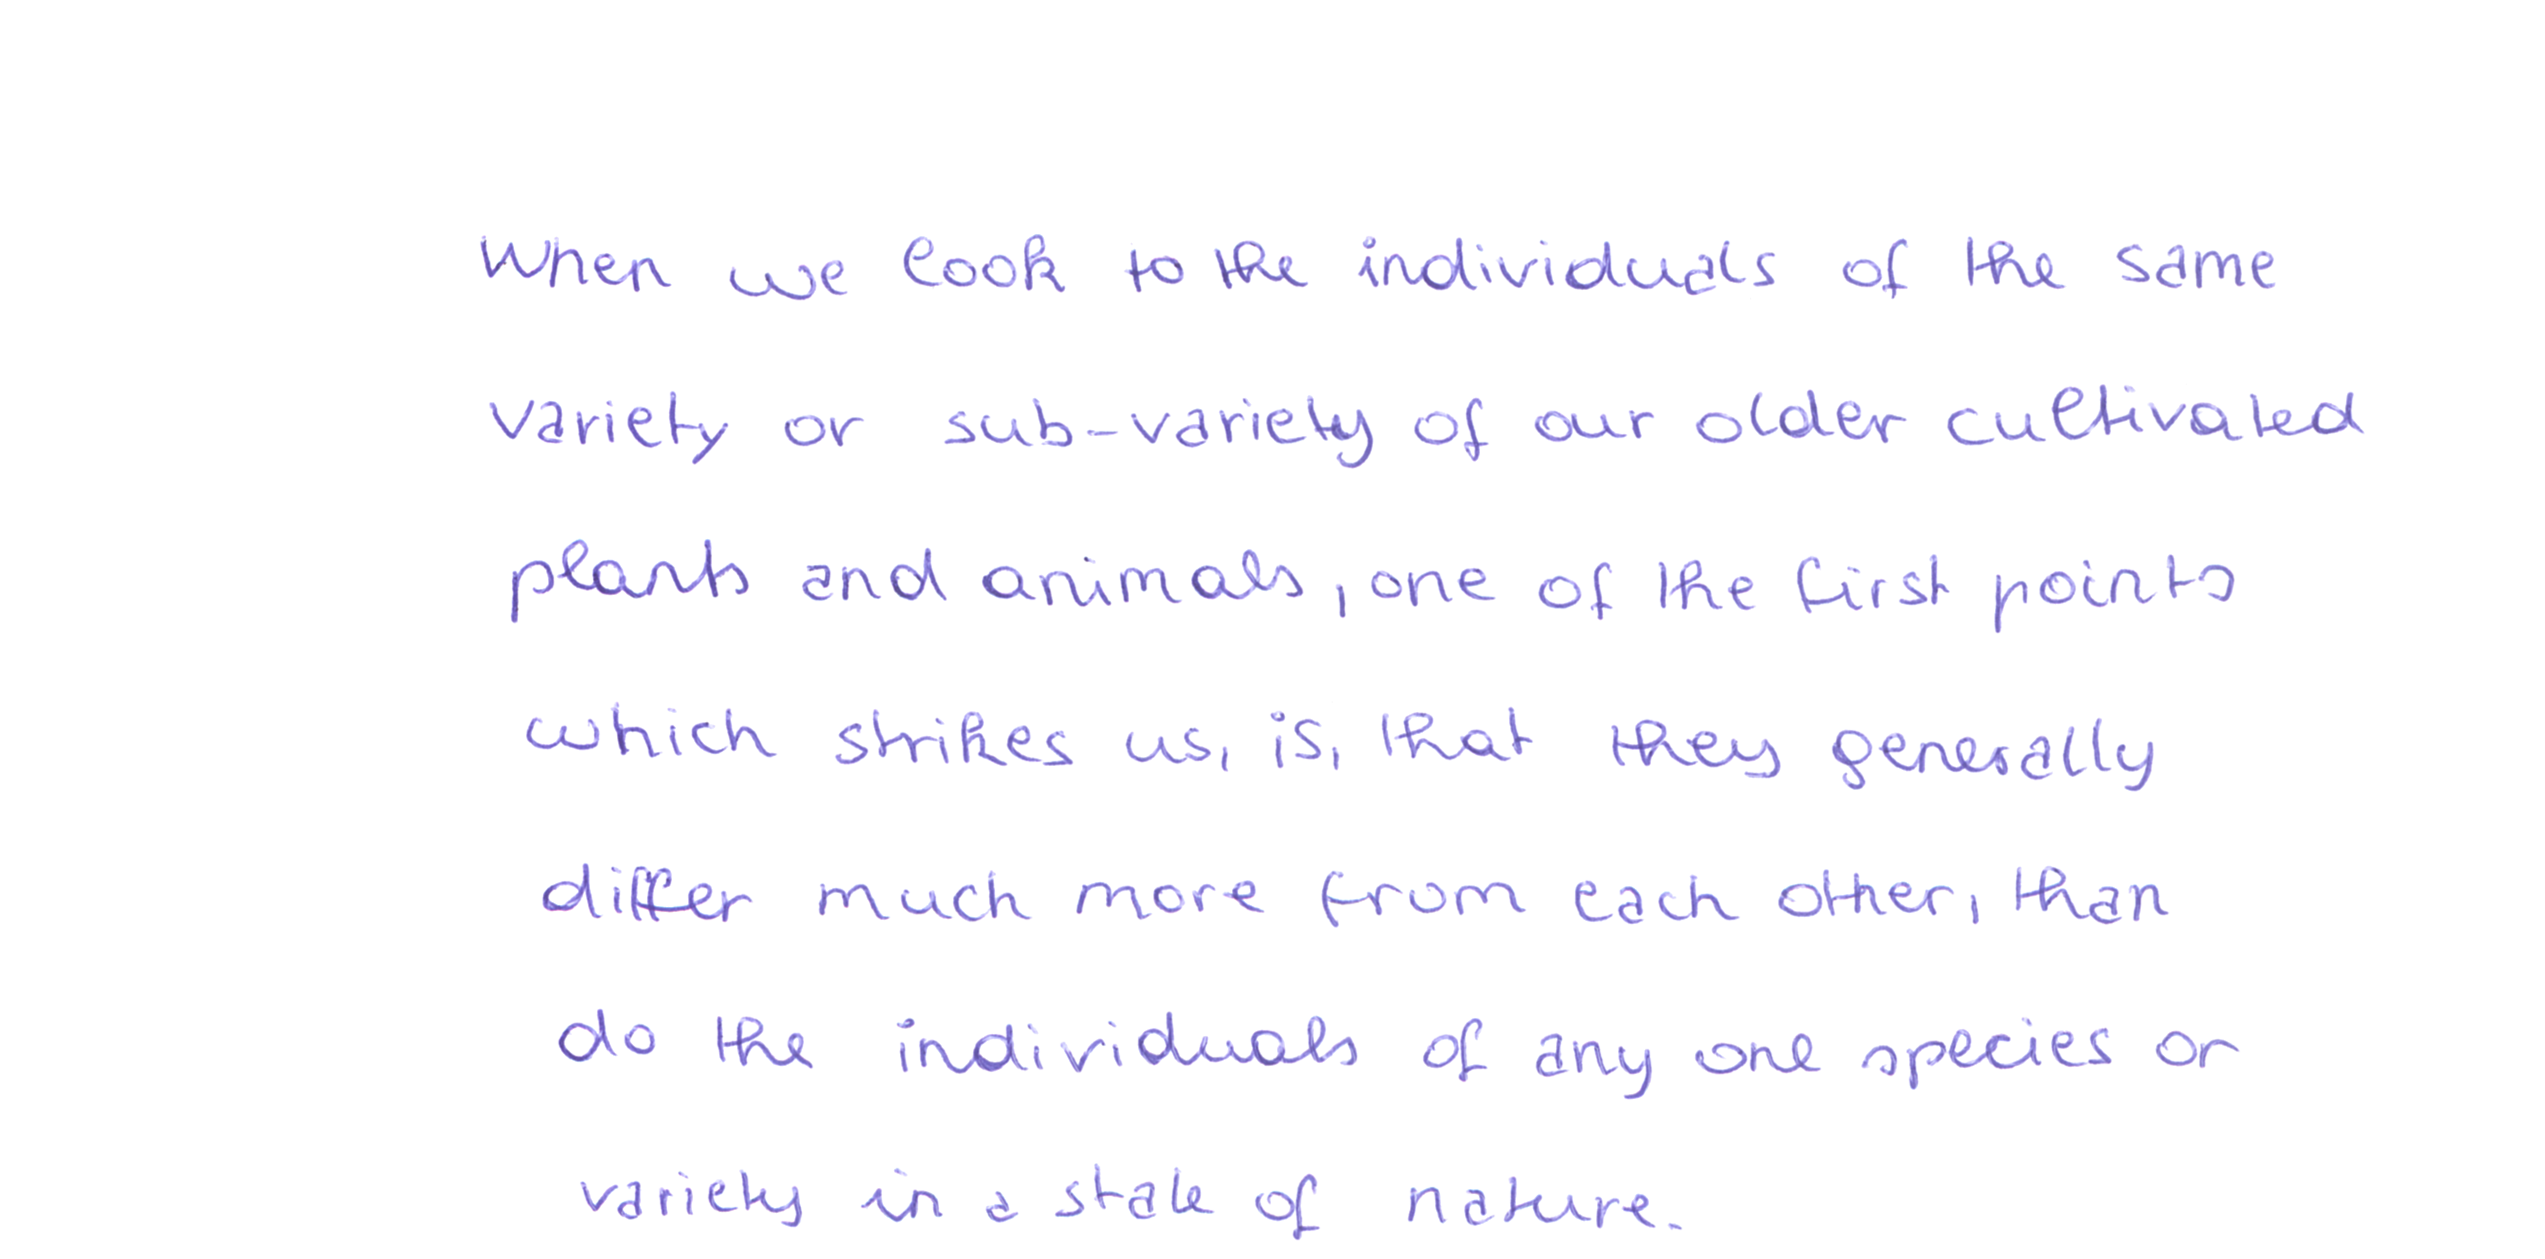 When we look to the individuals of the same
variety or sub-variety of our older cultivated
plants and animals, one of the first points
which strikes us, is, that they generally
differ much more from each other, than
do the individuals of any one species or
variety in a state of nature.